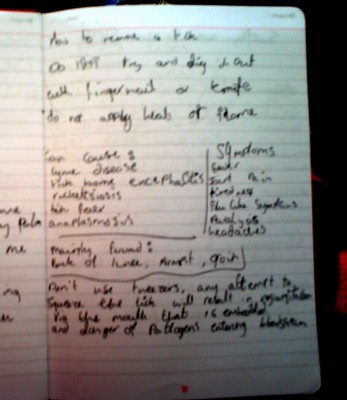 How to remove a tick
Do NOT try and dig it out
with fingernail or knife
do not apply heat or flame
can cause :
Lyme disease
tick borne encephalitis
rickettsiosis
tick fever
anaplasmosis
Symptoms
Fever
Joint Pain
tiredness
Flu like symptoms
Paralysis
headaches
mainly found :
Back of knee, Armpit, groin
Don't use tweezers, any attempt to
squeeze the tick will result in
the mouth that is embedded
and danger of pathogens entering bloodstream
me